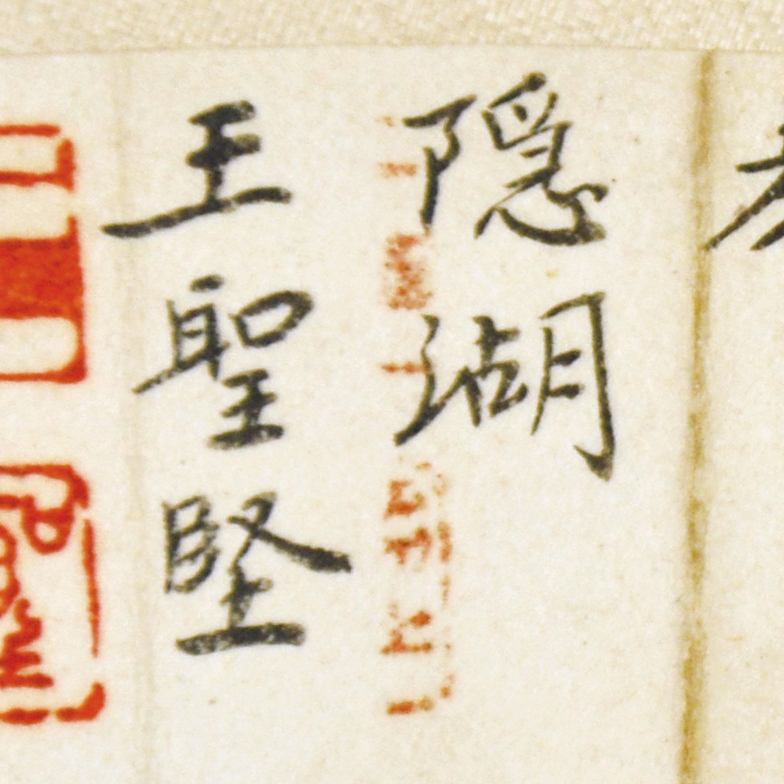 隱湖
王聖堅